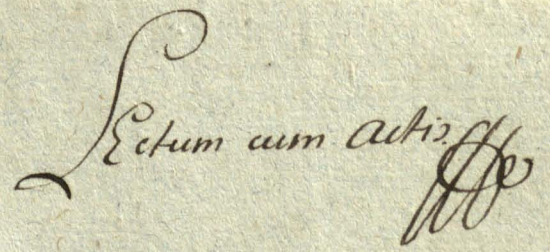 LEctum cum actis.